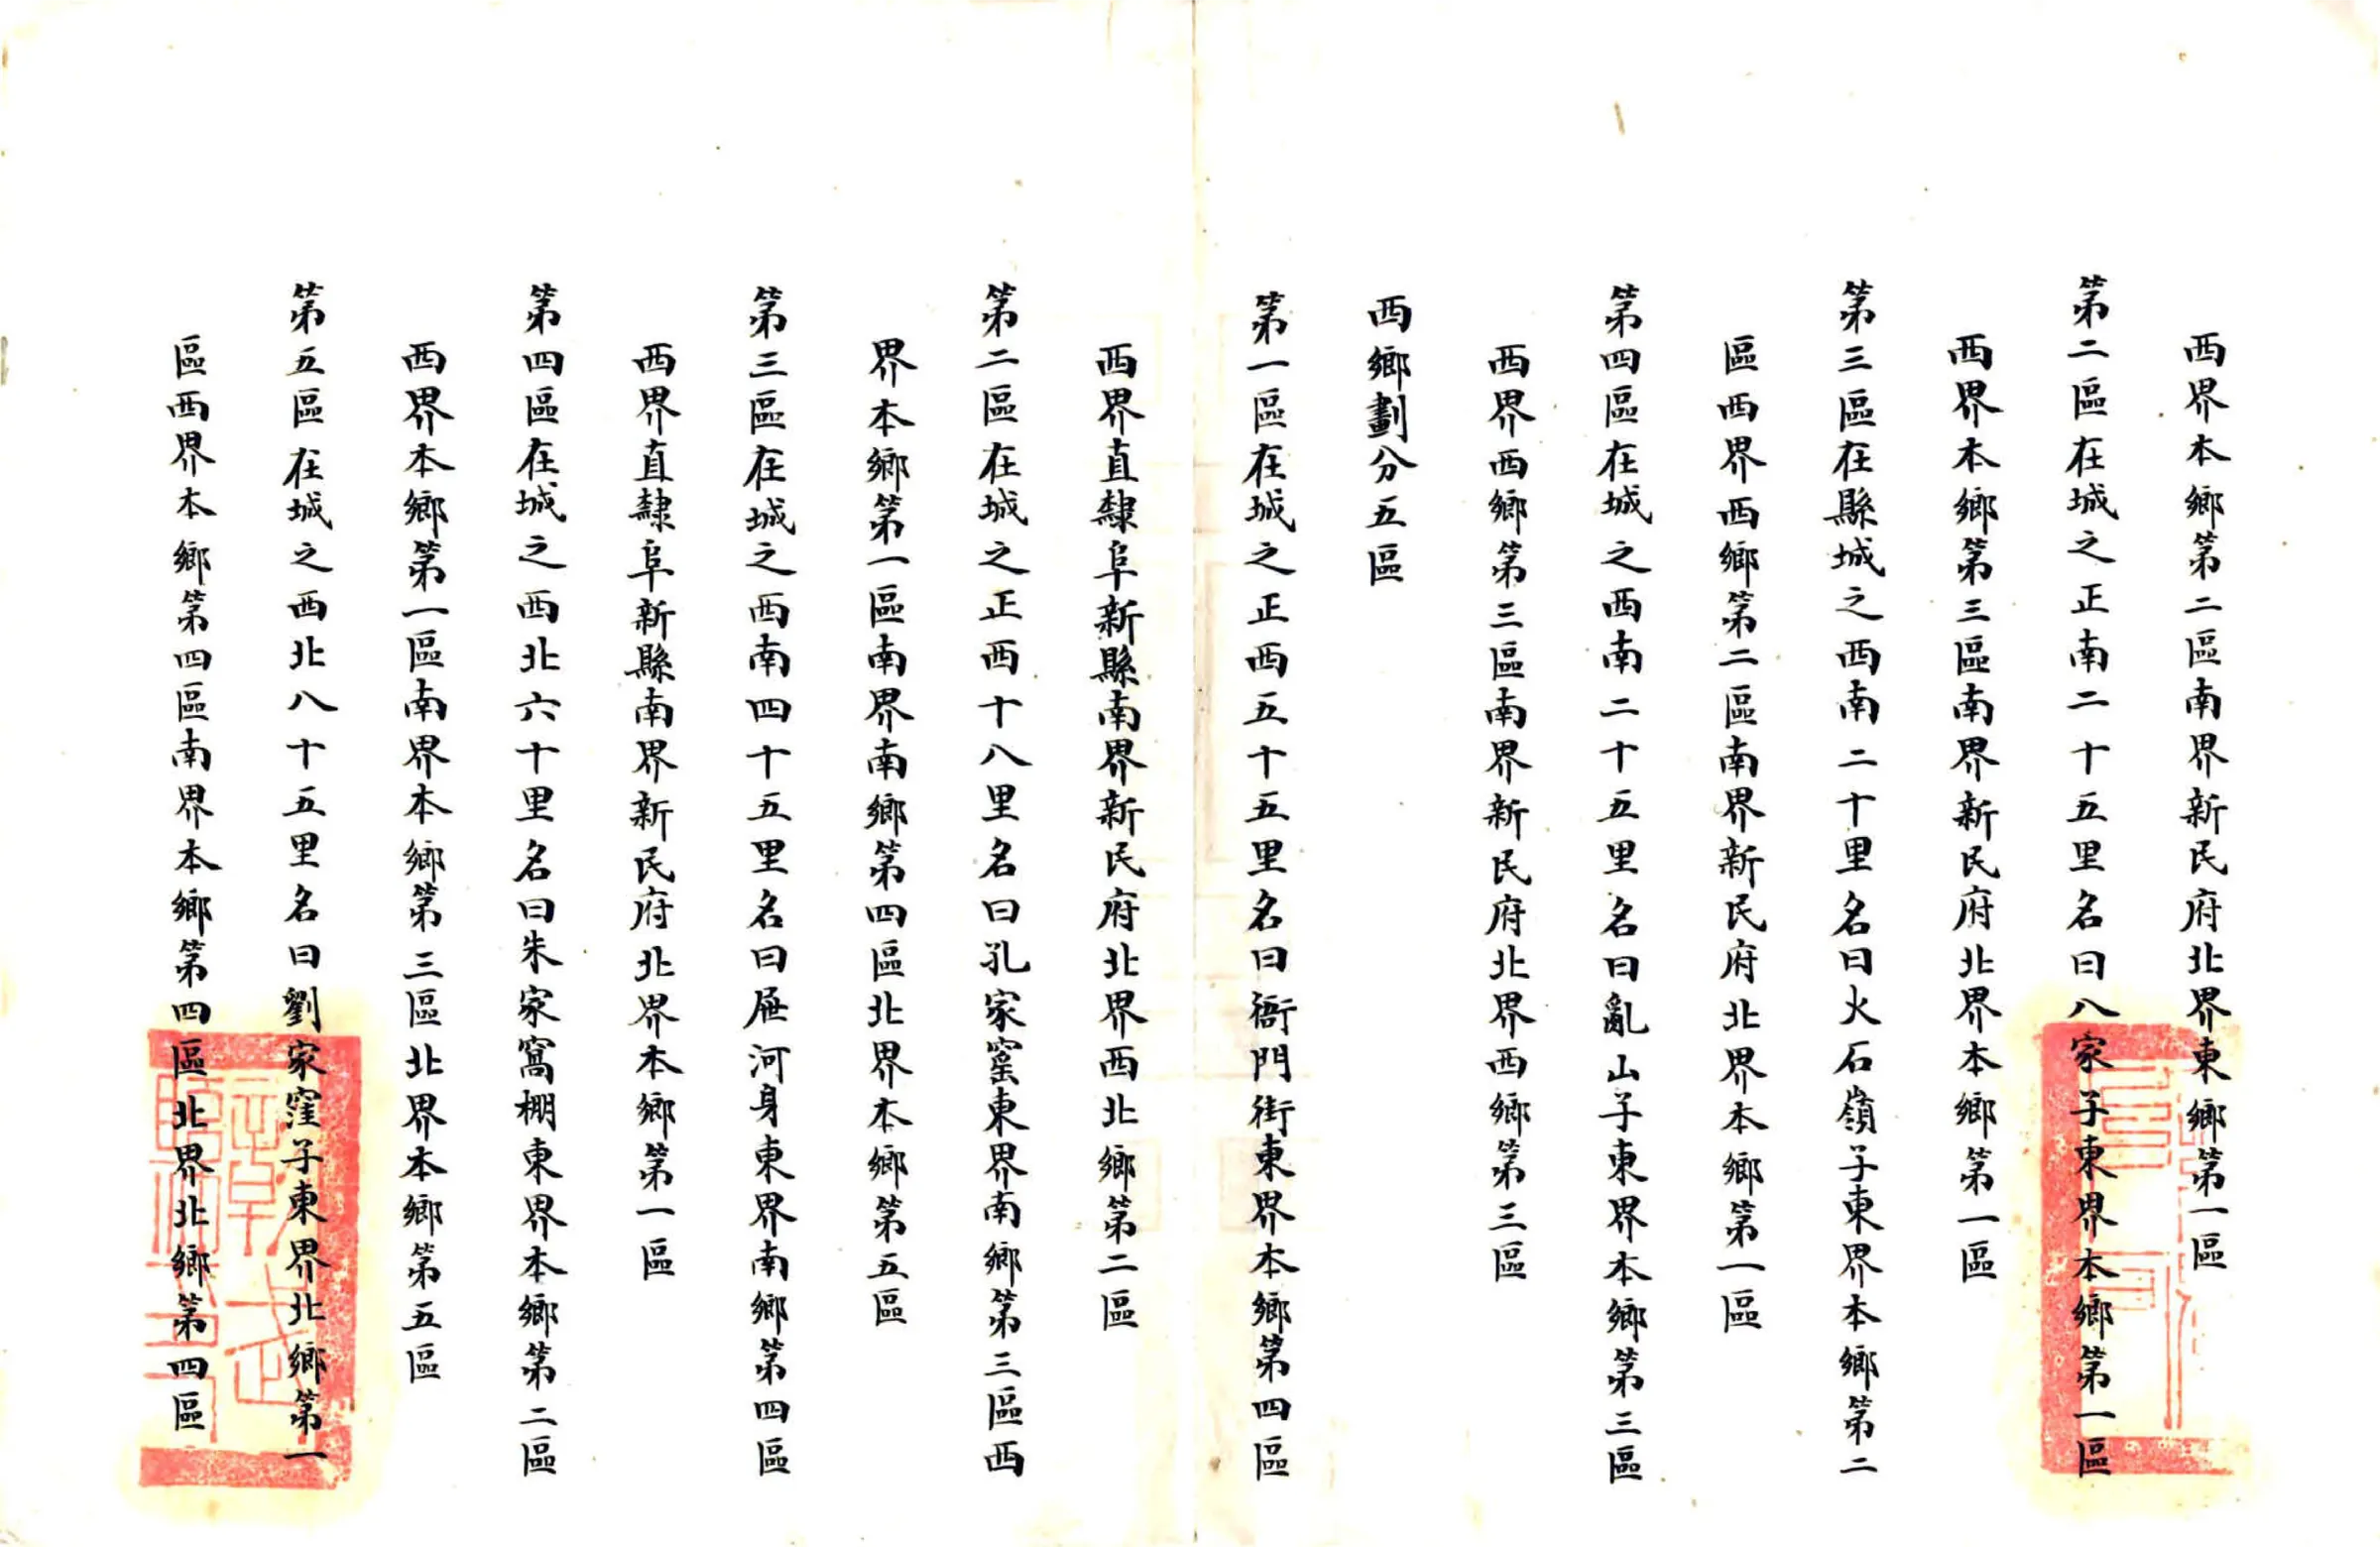 西界本鄉第二區南界新民府北界東鄉第一區
第二區在城之正南二十五里名曰八家子東界本鄉第一區
西界本鄉第三區南界新民府北界本鄉第一區
第三區在縣城之西南二十里名曰火石嶺子東界本鄉第二
區西界西鄉第二區南界新民府北界本鄉第一區
第四區在城之西南二十五里名曰亂山子東界本鄉第三區
西界西鄉第三區南界新民府北界西鄉第三區
西鄉劃分五區
第一區在城之正西五十五里名曰衙門街東界本鄉第四區
西界直隸阜新縣南界新民府北界西北鄉第二區
第二區在城之正西十八里名曰孔家窰東界南鄉第三區西
界本鄉第一區南界南鄉第四區北界本鄉第五區
第三區在城之西南四十五里名曰屜河身東界南鄉第四區
西界直隸阜新縣南界新民府北界本鄉第一區
第四區在城之西北六十里名曰朱家窩棚東界本鄉第二區
西界本鄉第一區南界本鄉第三區北界本鄉第五區
第五區在城之西北八十五里名曰劉家窪子東界北鄉第一
區西界本鄉第四區南界本鄉第四區北界北鄉第四區